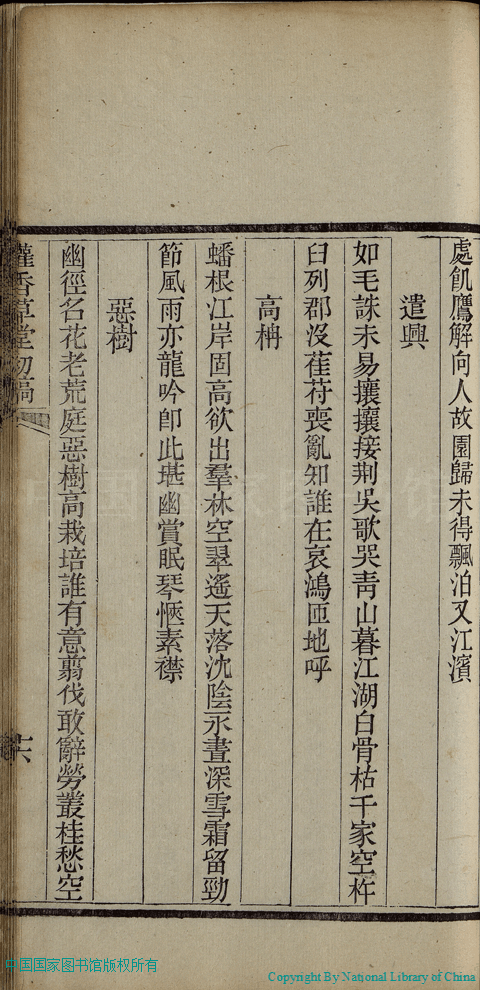 處飢鷹解向人故園歸未得飄泊又江濱
遣興
如毛誅未易攘攘接荆吳歌哭青山暮江湖白骨枯千家空杵
臼列郡沒萑苻喪亂知誰在哀鴻匝地呼
高柟
蟠根江岸固高欲出羣林空翠遙天落沈陰永晝深雪霜留勁
節風雨亦龍吟卽此堪幽賞眠琴愜素襟
惡樹
幽徑名花老荒庭惡樹高栽培誰有意翦伐敢辭勞叢桂愁空
香草堂初稿
十六
中国国家图书馆版权所有
Copyright By National Library of China